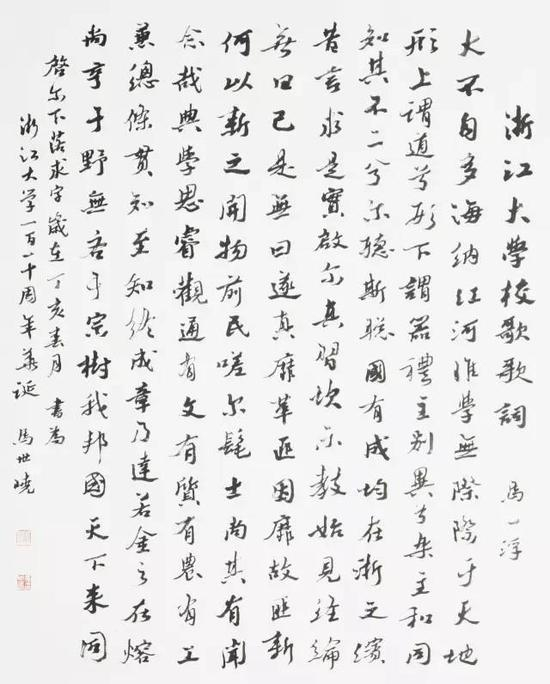 浙江大學校歌歌詞 馬一浮
大不自多海納江河惟學無際際于天地
形上謂道兮形下謂器禮主別異兮樂主和同
知其不二兮尔聽斯聰國有成均在浙之濱
昔言求是實啟尔真習坎示教始見經綸
無曰已是無曰遂真靡革匪因靡故匪新
何以新之開物前民嗟尔髦士尚其有聞
念哉典學思睿觀通有文有質有農有工
兼總條貫知至知終成章乃達若金之在熔
尚亨于野無吝于宗樹我邦國天下來同
啓尔下落求字歲在丁亥春月 書為
浙江大学一百一十周年華誕 馬世曉